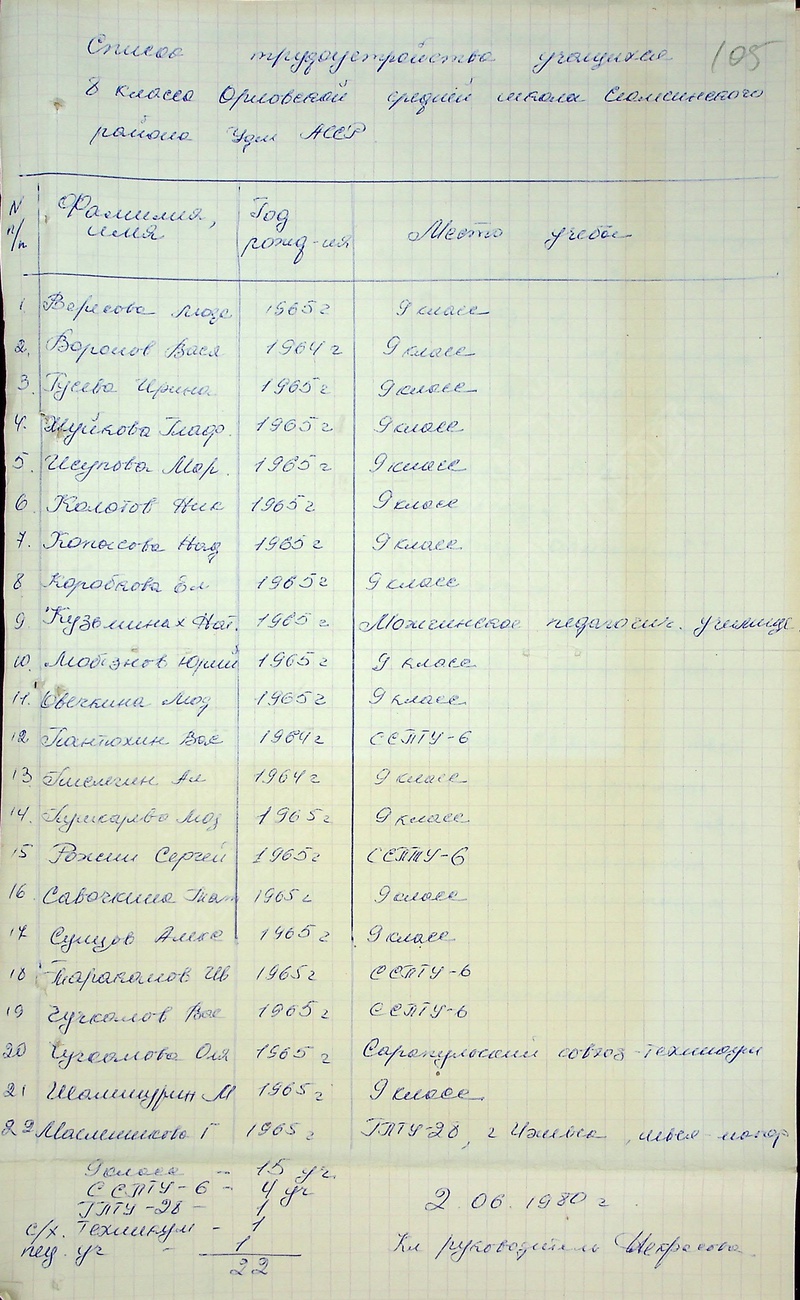 Список трудоустройства учащихся 105
8 класса Орловской средней школа Сюмсинского
района Удм АССР
N п/п Фамилия, имя Год рожд-ия Место учебы
1 Вересова Люда 1965 г 9 класс
2. Воронов Вася 1964 г 9 класс
3. Гусева Ирина 1965 г 9 класс
4. Жуйкова Глаф. 1965 г 9 класс
5. Исупова Мар. 1965 г 9 класс
6 Колотов Ник 1965 г 9 класс
7. Копысова Над 1965 г 9 класс
8 Коробкова Ел 1965 г 9 класс
9 Кузьминах Нат. 1965 г Можгинское педагогич. училище
10. Юрий 1965 г 9 класс
11. Овечкина Люд 1965 г 9 класс
12 Пантюхин Вас 1964 г ССПТУ-6
13 Ал 1964 г 9 класс
14. Пушкарева Люд 1965 г 9 класс
15 Рожин Сергей 1965 г ССПТУ-6
16. Савочкина Тат 1965 г 9 класс
17 Сунцов Алекс 1965 г 9 класс
18 Тараканов Ив 1965 г ССПТУ-6
19 Чучкалов Вас 1965 г ССПТУ-6
20 Оля 1965 г Сарапульский совхоз-техникум
21 Шамшурин М 1965 г 9 класс
22 Масленникова Г 1965 г ГПТУ-28, г Ижевск, швея-мотор
9 класс - 15 уч.
ССПТУ-6 - 4 уч
ГПТУ-28 - 1
2.06.1980 г.
с/х. Техникум - 1
пед. уч - 1
Кл руководитель Некрасова.
22